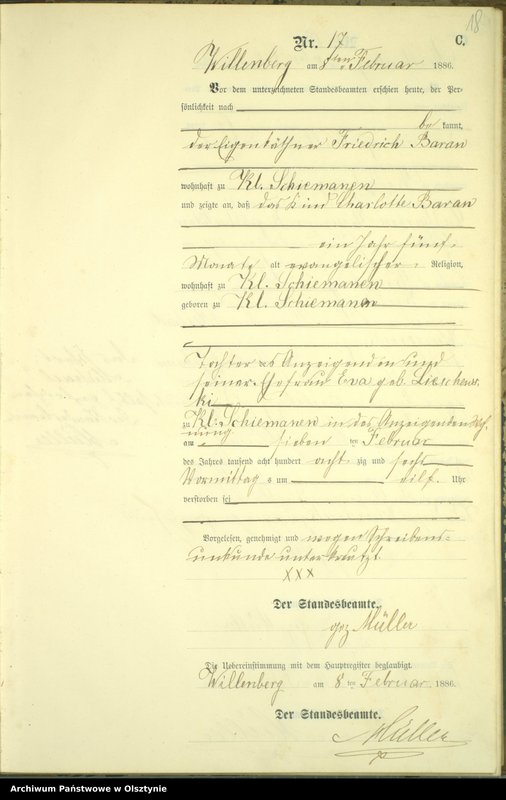 18
Nr. 17 C.
Willenberg am 8ten Februar 1886.
Vor dem unterzeichneten Standesbeamten erschien heute, der Per-
sönlichkeit nach
be kannt,
der Eigenkäthner Friedrich Baran
wohnhaft zu Kl. Schiemanen
und zeigte an, daß das Kind Charlotte Baran
ein Jahr fünf
Monate alt evangelischer Religion,
wohnhaft zu Kl. Schiemanen
geboren zu Kl. Schiemanen
Tochter des Anzeigenden und
seiner Ehefrau Eva geb.
ki
zu Kl. Schiemanen in des Anzeigenden Woh-
nung
am sieben ten Februar
des Jahres tausend acht hundert acht zig und sechs
Vormittag s um eilf Uhr
verstorben sei
Vorgelesen, genehmigt und wegen Schreibens-
unkunde unterkreuzt
XXX
Der Standesbeamte.
gez Müller
Die Uebereinstimmung mit dem Hauptregister beglaubigt.
Willenberg am 8 ten Februar 1886.
Der Standesbeamte.
Müller
Archiwum Państwowe w Olsztynie